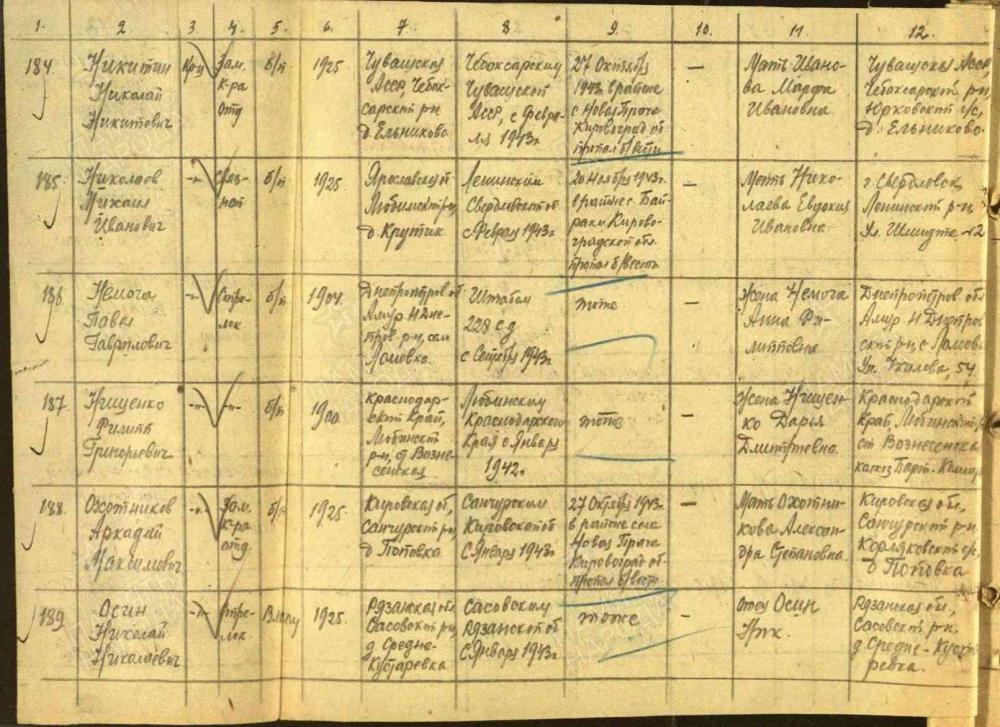 1. 2 3. 4. 5. 6. 7 8. 9 10. 11. 12.
184 Никитин Николай Никитович
Кр-ц
Зам. к-ра отд
б/п
1925
Чувашская
Асср, Чебок-
сарский р-н
д. Ельниково
Чебоксарским
Чувашской
Асср, с Февра-
ля 1943г
27 Октября
1943г. в районе
с Новая Прага
Кировоград об
пропал б/вести
—
Мать Ивано-
ва Марфа
Ивановна
Чувашская Асср,
Чебоксарский р-н
с/с,
д. Ельниково.
185
Николаев
Михаил
Иванович
-"-
Связ-
ной
б/п
1925
Ярославской
р-н,
д. Крутик
Ленинским
Свердловской об
с Февраля 1943г
20 Ноября 1943г.
в районе с. Бай-
раки. Кирово-
градской обл.
пропал б/вести
—
Мать Нико-
лаева Евдокия
Ивановна
г. Свердловск,
Ленинский р-н
Ул. Шмидта
186
Немога
Павел
Гаврилович
-"-
Стре-
лок
б/п
1904
Днепропетров об
Амур Н Дне-
пров. р-н, село
Ломовка.
Штабом
228 с д
с Сентября 1943г
тоже
—
Жена Немога
Анна Фи-
липповна
Днепропетров обл
Амур Н Днепров
р-н, с Ломов
Ул. Чкалова, 54
187
Нищенко
Филипп
Григорьевич
-"-
-"-
б/п
1900
Краснодар-
ский Край,
Лабинский
р-н, ст Возне-
сенская
Лабинским
Краснодарского
Края с Января
1942г.
тоже
—
Жена Нищен-
ко Дарья
Дмитриевна.
Краснодарский
Край, Лабинский
ст Вознесенская
188
Охотников
Аркадий
Максимович
-"-
Зам.
к-ра
отд.
б/п
1925
Кировская об,
Санчурский р-н,
д Поповка
Санчурским
Кировской об
с Января 1943г
27 Октября 1943г.
в районе села
Новая Прага
Кировоград об
пропал б/вести
—
Мать Охотни-
кова Алексан-
дра Степановна
Кировская об,
Санчурский р-н.
Корляковский с/с,
д Поповка
189
Осин
Николай
Николаевич
-"-
Стре-
лок
1925
Рязанская обл
Сасовский р-н,
д Средне-
Кустаревка
Сасовским
Рязанской об
с Января 1943г
тоже
—
Отец Осин
Ник.
Рязанская обл,
Сасовский р-н,
д Средне-Куста
ревка.